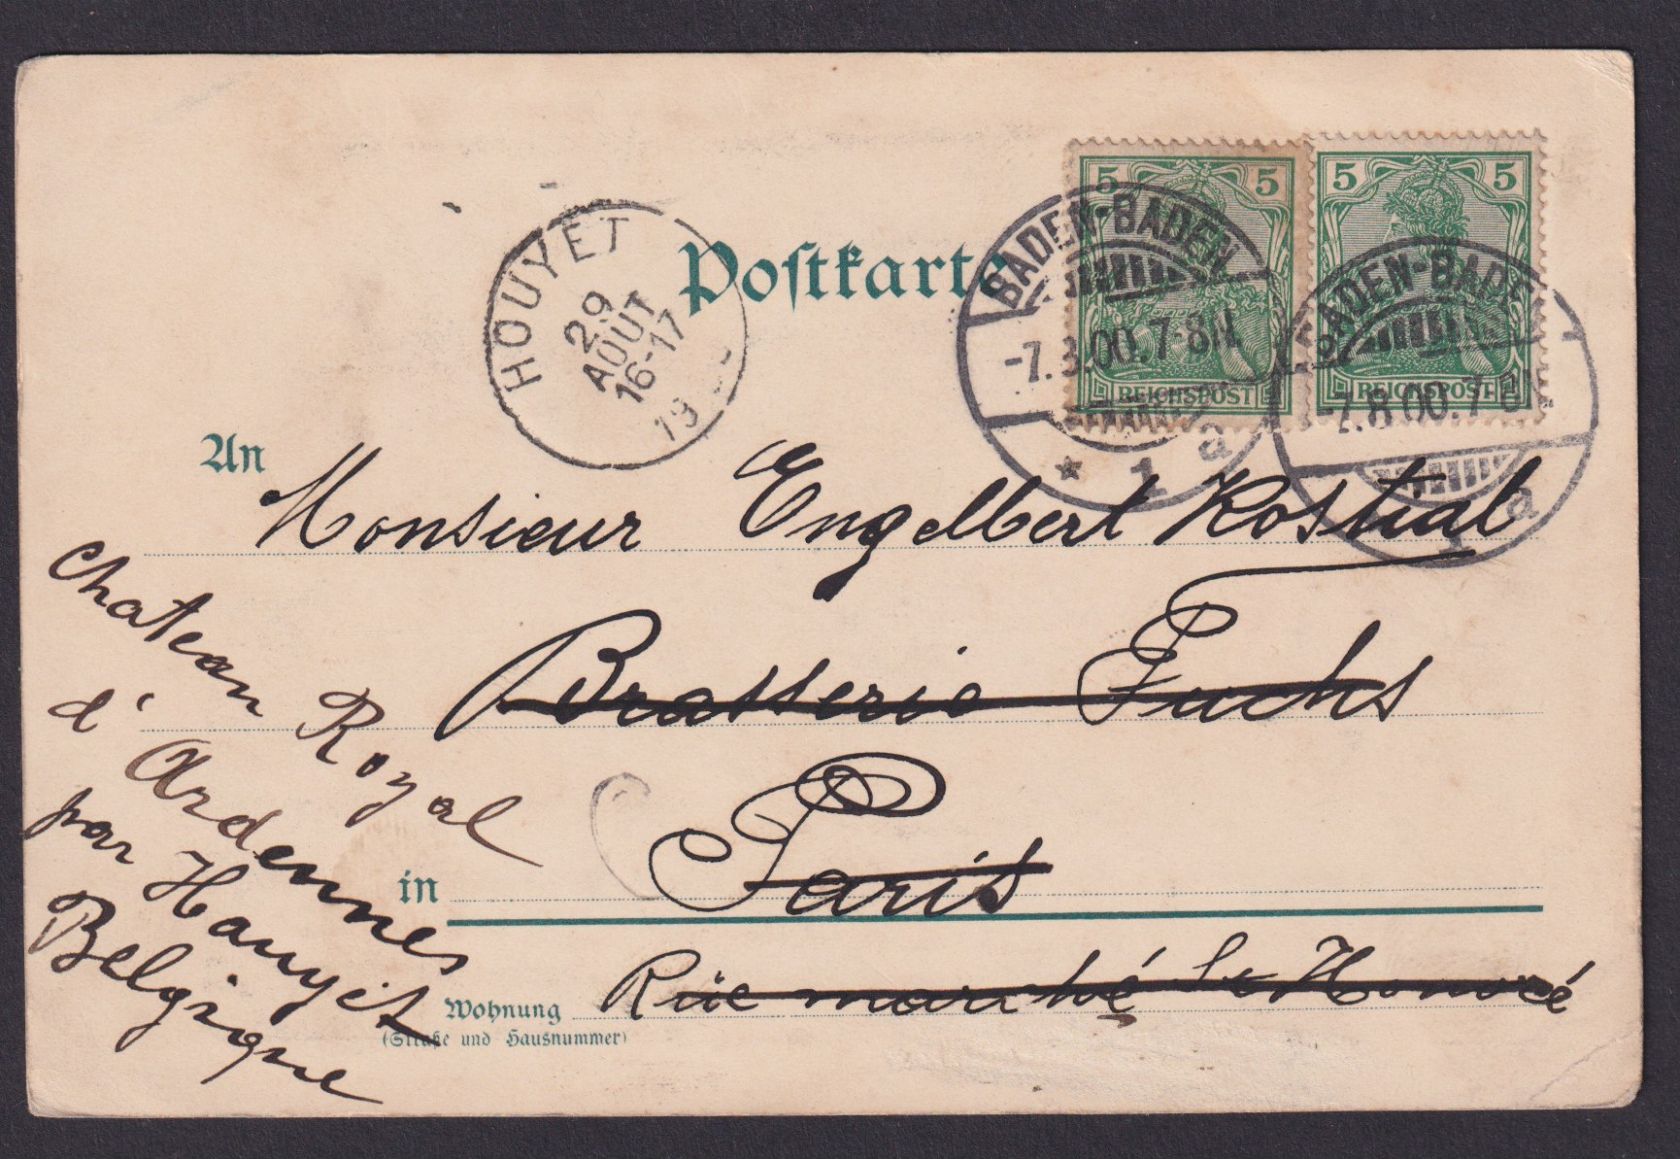 Postkarte
HOUYET
29
AOUT
16-17
19
5 5
REICHSPOST
5 5
REICHSPOST
BADEN-BADEN
-7.8.00.7-8N.
* 1 a
BADEN-BADEN
-7.8.00.7-8N.
1 a
An Monsieur Engelbert Kostial
Brasserie Fuchs
in Paris
Wohnung Rüe marché St Honoré
(Straße und Hausnummer)
Chateau Royal
d'Ardennes
par Houyet
Belgique